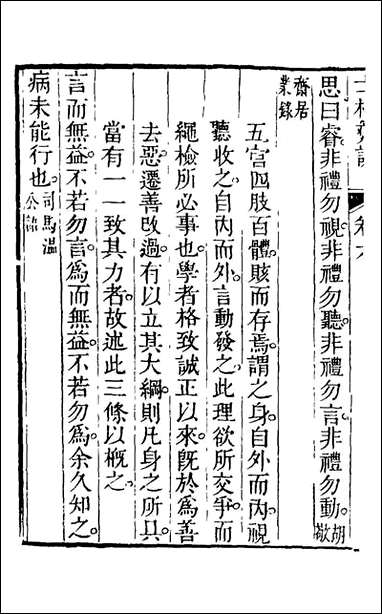 思曰睿非禮勿視非禮勿聽非禮勿言非禮勿動胡敬
齋居業錄
五官四肢百體賅而存焉謂之身自外而內視
聽收之自內而外言動發之此理欲所交爭而
繩檢所必事也學者格致誠正以來旣於爲善
去惡遷善改過有以立其大綱則凡身之所具
當有一一致其力者故述此三條以概之
言而無益不若勿言爲而無益不若勿爲余久知之
病未能行也司馬溫公語